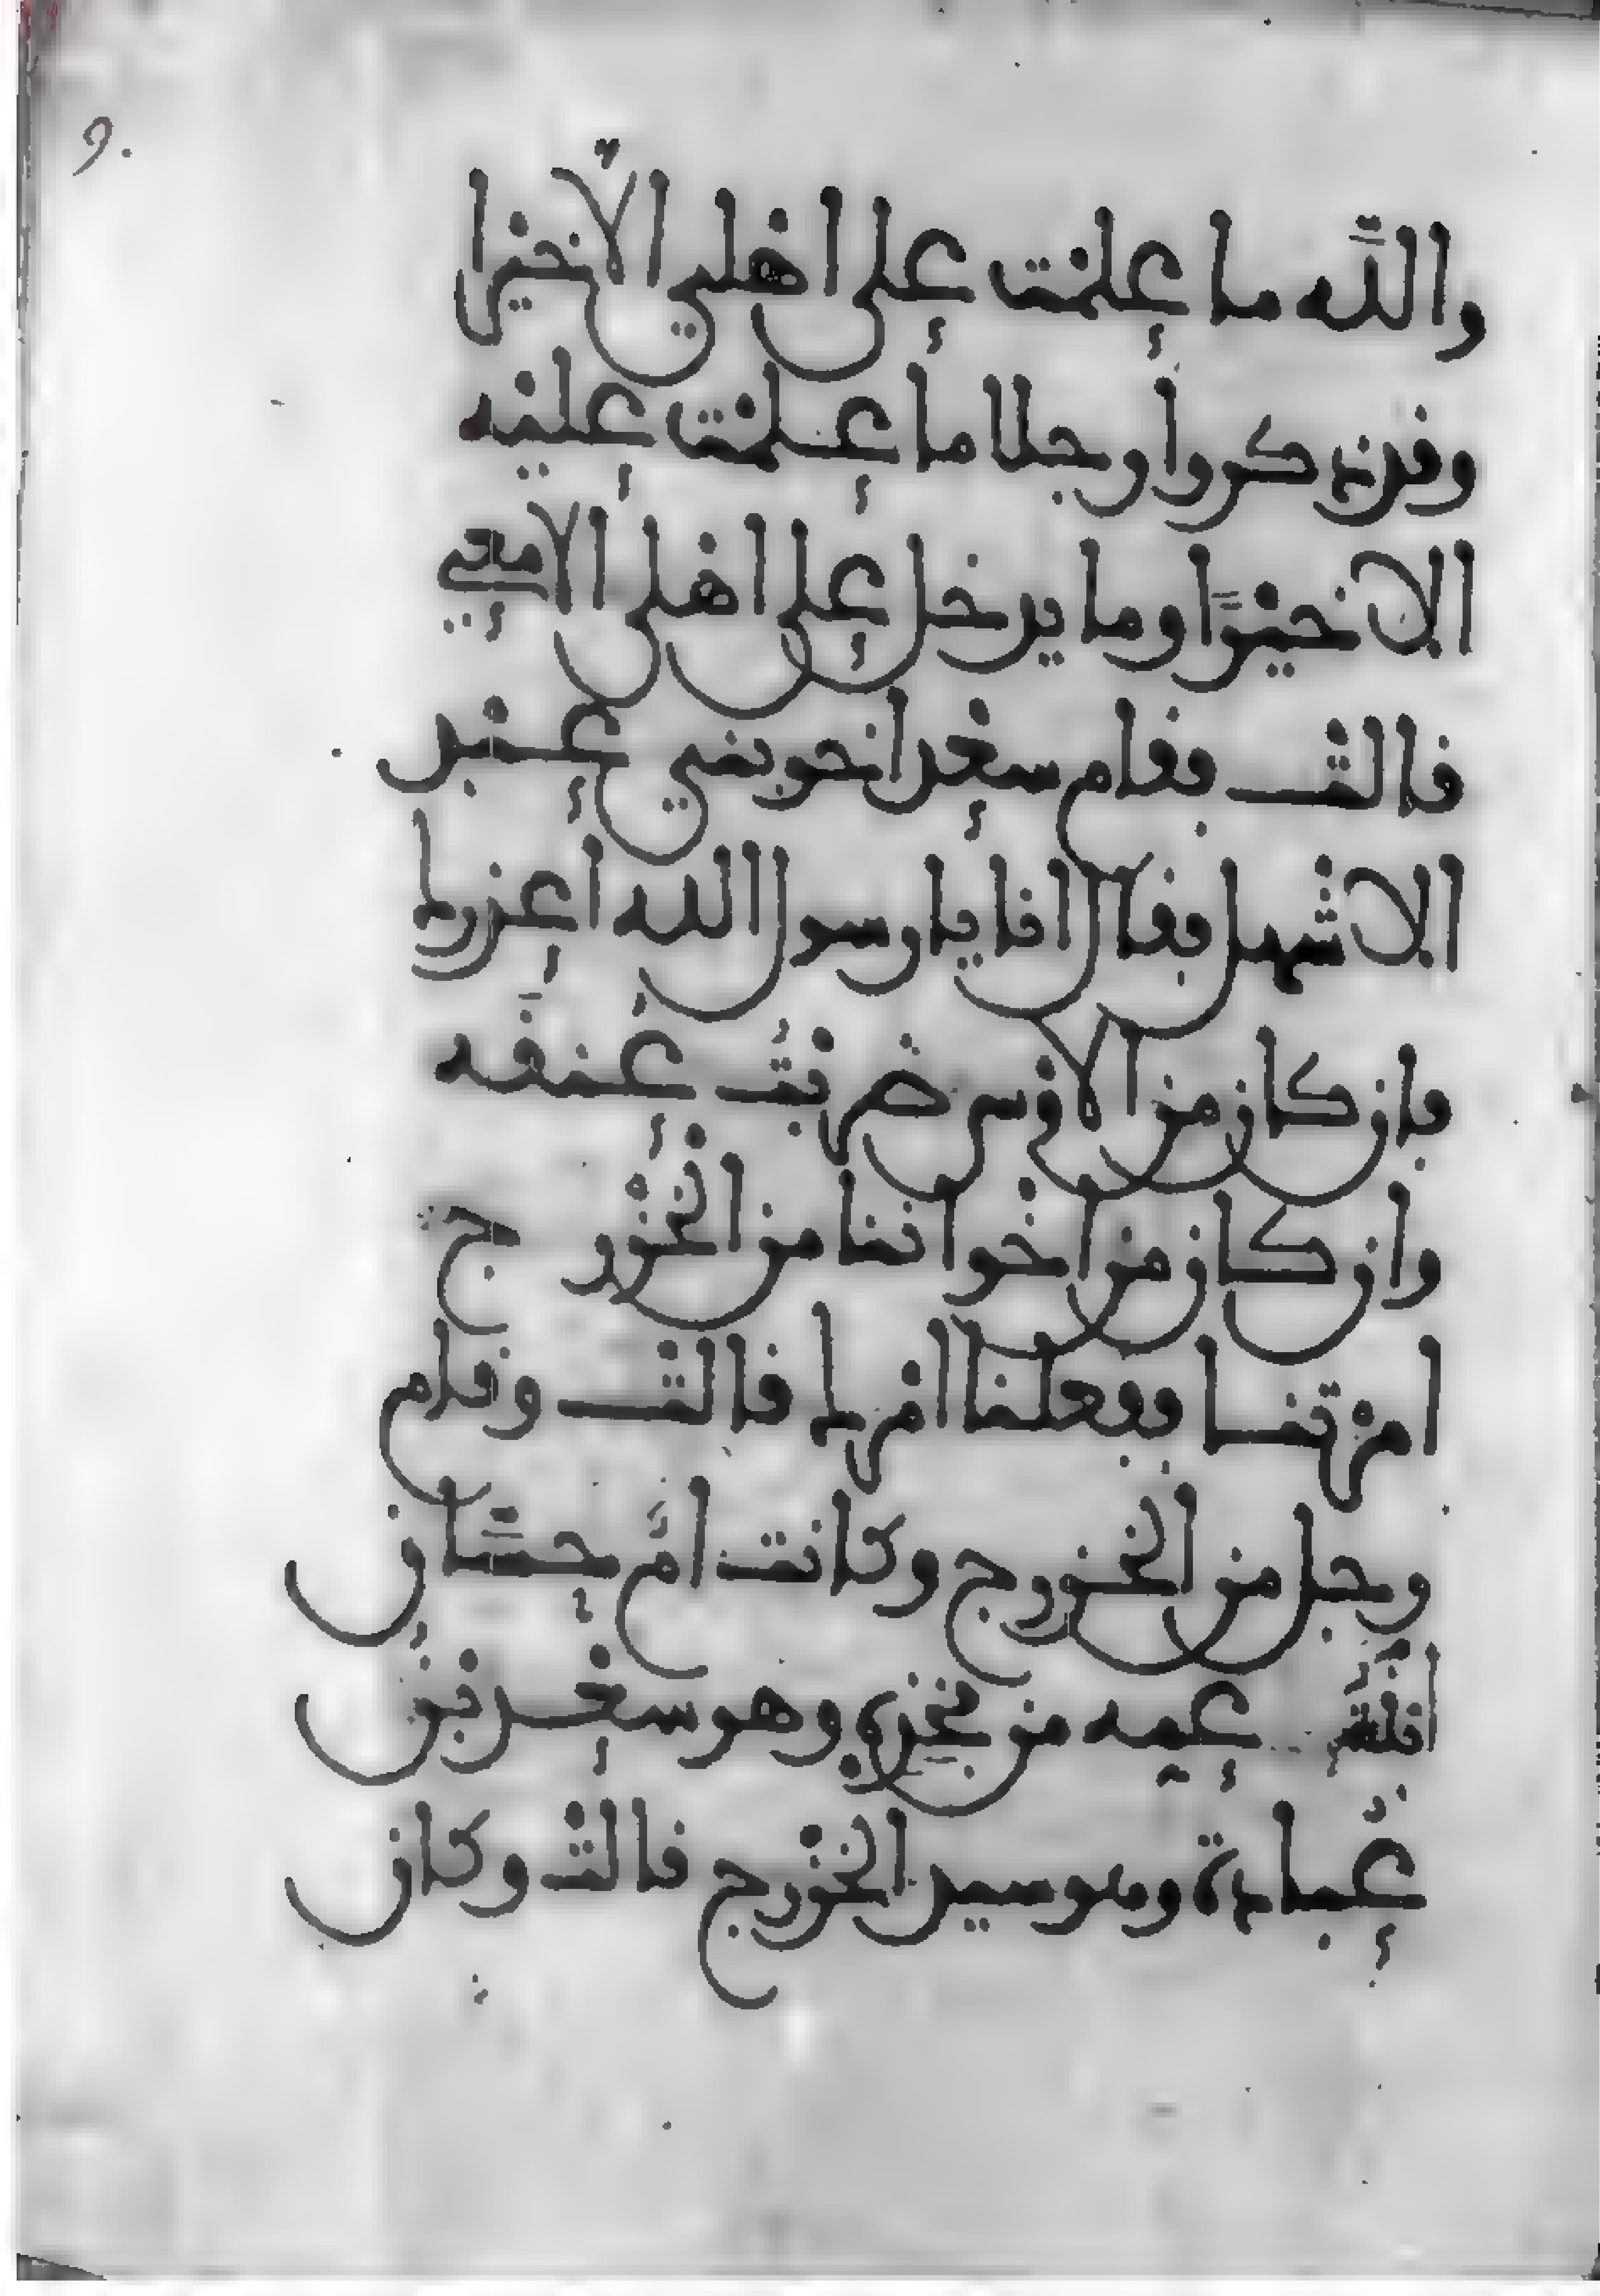 9.
والله ما علمت على اهلي الا خيرا
وقد ذكروا رجلا ما علمت عليه
الا خيرًا وما يدخل على اهلي الا معي
قالت فقام سعد اخو بني عبد
الاشهل فقال انا يا رسول الله اعذرك
فان كان من الاوس ضربت عنقه
وان كان من اخواننا من الخزرج
امرتنا ففعلنا امرك قالت وقام
رجل من الخزرج وكانت امّ حسّان
ابنة عمه من فخذه وهو سعد بن
عبادة وهو سيد الخزرج قالت وكان